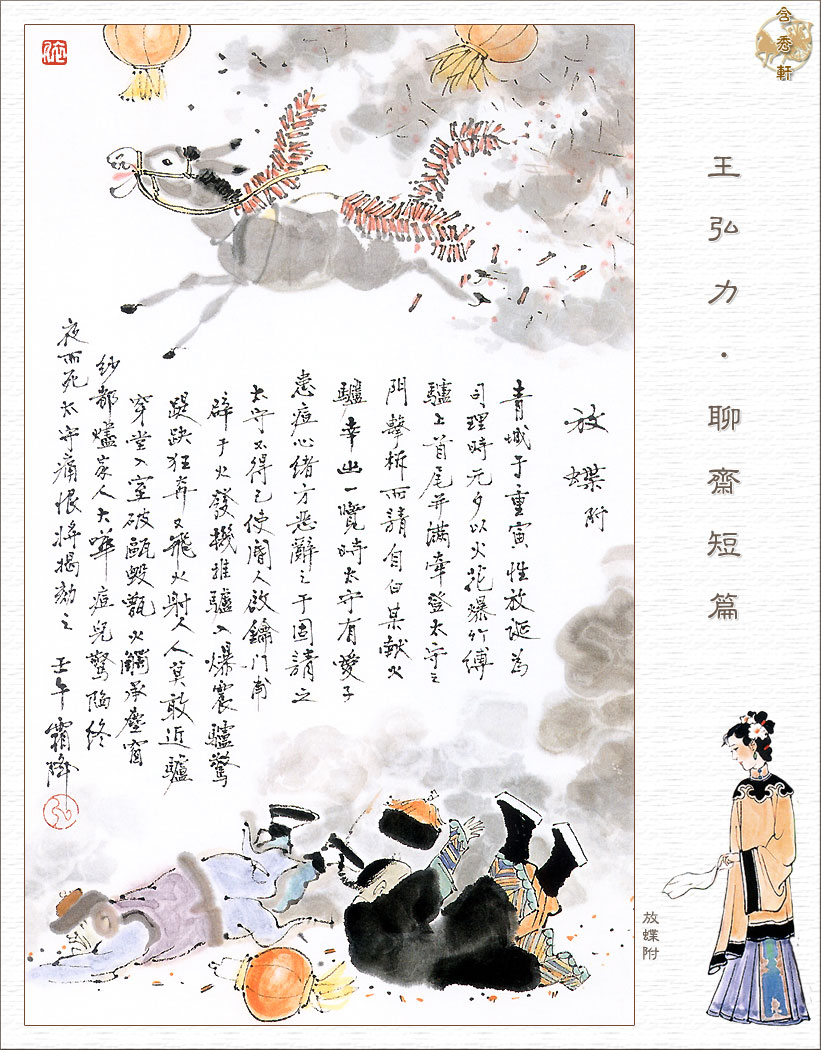 含秀軒
王弘力·聊齋短篇
放蝶附
青城于重寅性放誕為
司理時元夕以火花爆竹縛
驢上首尾并滿牽登太守之
門擊柝而請自白某獻火
驢幸出一覽時太守有愛子
患痘心緒方惡辭之于固請之
太守不得已使閽人啟鑰門甫
闢于火發機推驢入爆震驢驚
踶趹狂奔又飛火射人人莫敢近驢
穿堂入室破甌毀甑火觸承塵窗
紗都燼家人大嘩痘兒驚陷終
夜而死太守痛恨將揭劾之
壬午霜降
放蝶附